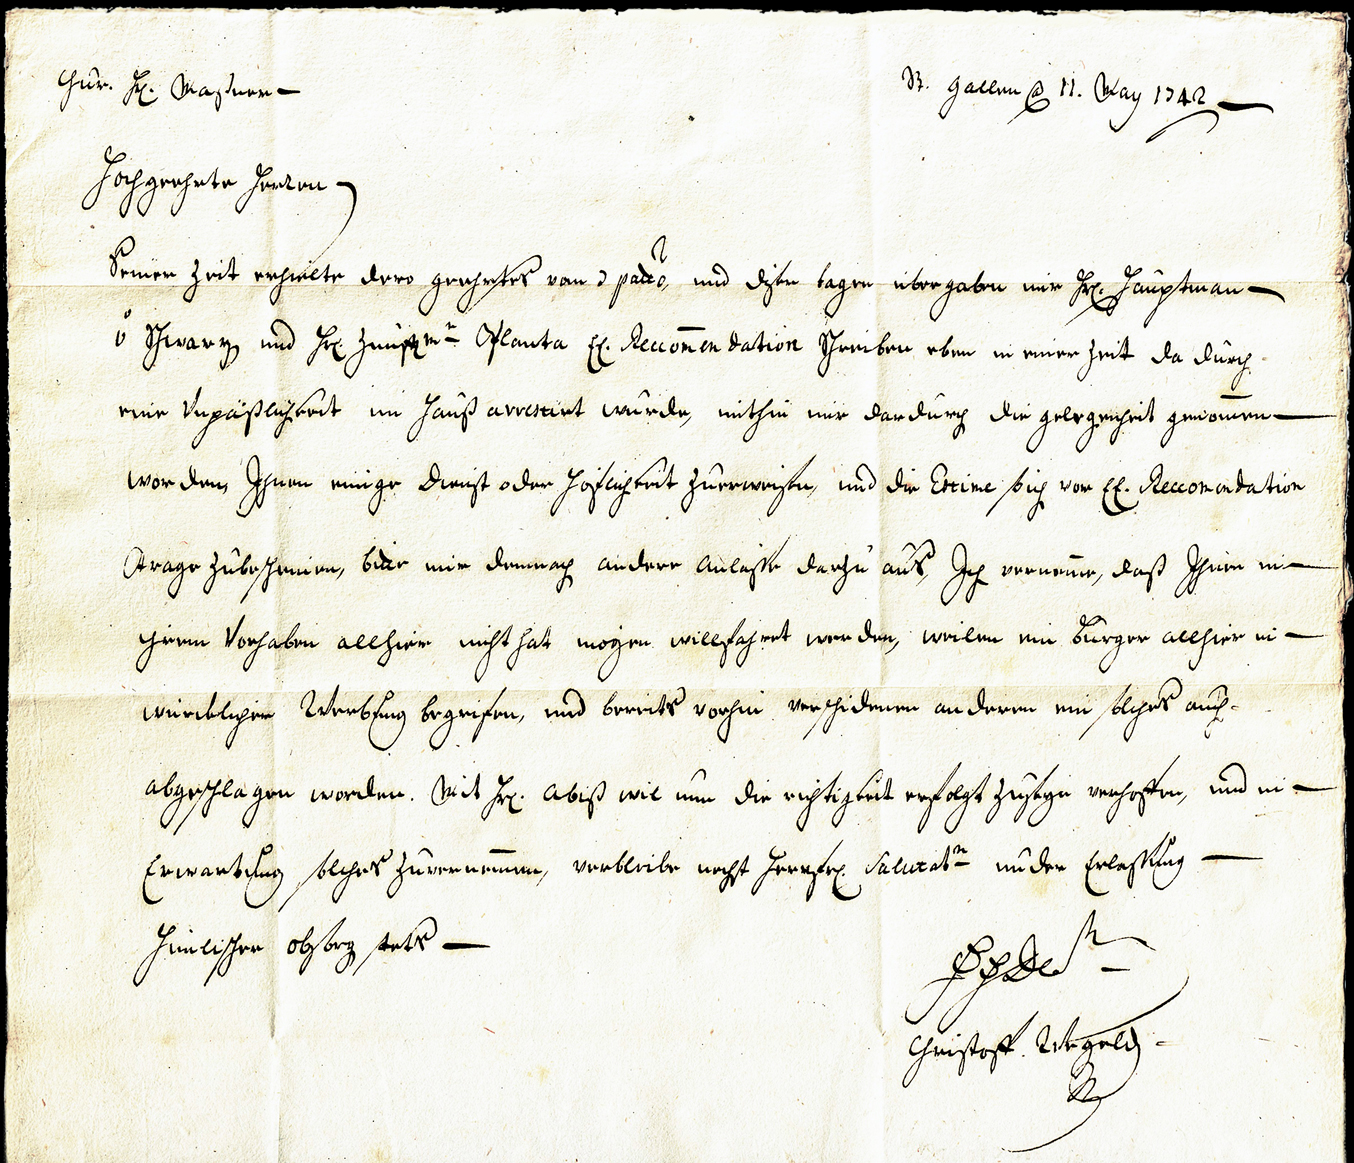 Chur. Hr. Massner
St. Gallen @ 11. May 1742
Hochgeehrte Herren
Seiner Zeit erhielte dero geehrtes von 3 pass°, und diser tagen übergaben mir Hr. Hauptman
v Schwarz und Hr. Planta EE. Reccom̄endation Schreiben eben in einer Zeit da durch
eine Unpäßlichkeit im Hauß arrestirt wurde, mithin mir dardurch die gelegenheit genom̄en
worden, Ihnen einige Dienst oder Höflichkeit zuerweisen, und die Estime so ich vor EE. Reccomendation
trage zubescheinen, bitte mir demnach andere Anlässe darzu aus, Ich vernem̄e, daß Ihnen in
ihrem Vorhaben allhier nicht hat mögen willfahret werden, weilen ein Burger allhier in
würcklicher Werbung begriffen, und bereits vorhin verschidenen anderen ein solches auch
abgeschlagen worden. Mit Hr. Abiß wil nun die richtigkeit erfolgt zuseyn verhoffen, und in
Erwartung solches zuvernem̄en, verbleibe nechst Salutatn under Erlassung
Him̄lischer obsorg stets
Christoff Wegeli